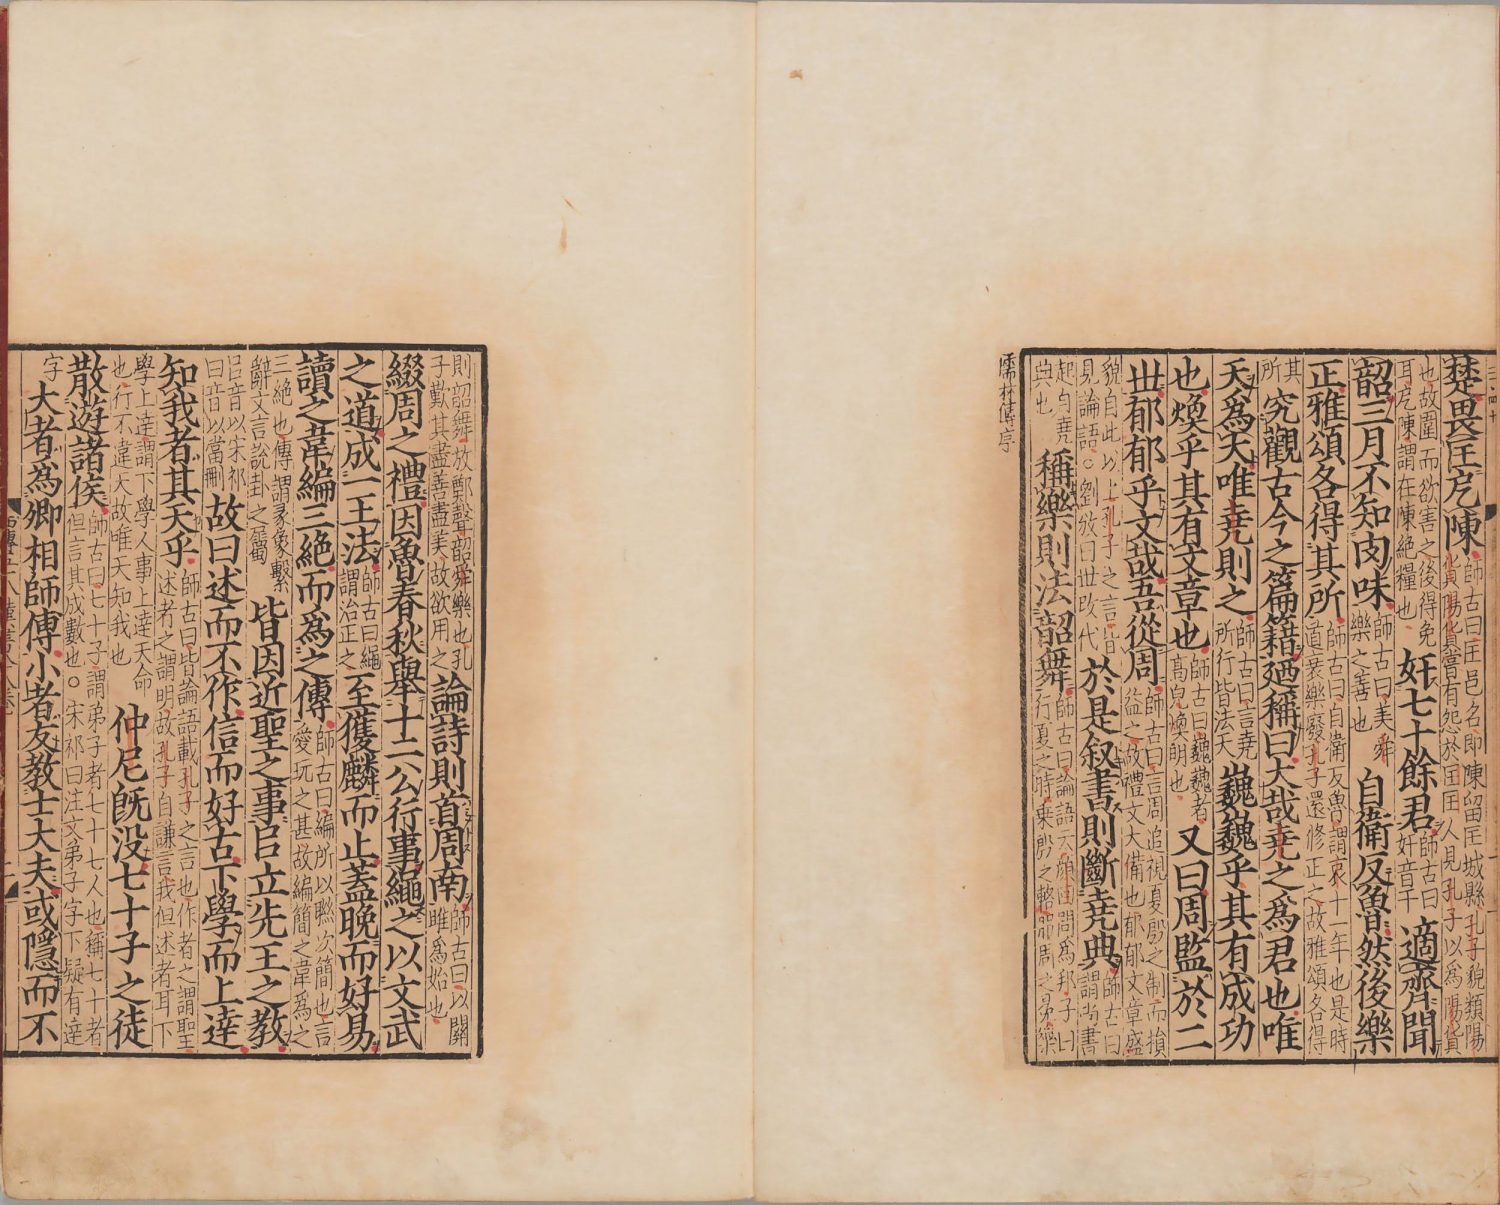 楚畏匡厄陳師古曰匡邑名即陳留匡城縣孔子貌類陽貨陽貨嘗有怨於匡匡人見孔子以為陽貨
也故圍而欲害之後得免耳厄陳謂在陳絕糧也奸七十餘君師古曰奸音干適齊聞
韶三月不知肉味師古曰美舜樂之善也自衛反魯然後樂
正雅頌各得其所師古曰自衛反魯謂哀十一年也是時道衰樂廢孔子還修正之故雅頌各得
其所究觀古今之篇籍廼稱曰大哉堯之為君也唯
天為大唯堯則之師古曰言堯所行皆法天巍巍乎其有成功
也煥乎其有文章也師古曰巍巍者高皃煥明也又曰周監於二
世郁郁乎文哉吾從周師古曰言周追視夏殷之制而損益之故禮文大備也郁郁文章盛
貌自此以上孔子之言皆見論語○劉攽曰世改代於是叙書則斷堯典師古曰謂尚書
起自堯典也稱樂則法韶舞師古曰論語云顏回問為邦子曰行夏之時乘殷之輅服周之冕樂
儒林傳序
則韶舞放鄭聲韶舜樂也孔子歎其盡善盡美故欲用之論詩則首周南師古曰以關雎為始也
綴周之禮因魯春秋舉十二公行事繩之以文武
之道成一王法師古曰繩謂治正之至獲麟而止蓋晚而好易
讀之韋編三絕而為之傳師古曰編所以聮次簡也言愛玩之甚故編簡之韋為之
三絕也傳謂彖象繫辭文言說卦之屬皆因近聖之事㠯立先王之教
㠯音以宋祁曰音以當刪故曰述而不作信而好古下學而上達
知我者其天乎師古曰皆論語載孔子之言也作者之謂聖述者之謂明故孔子自謙言我但述者耳下
學上達謂下學人事上達天命也行不違天故唯天知我也仲尼既没七十子之徒
散遊諸侯師古曰七十子謂弟子者七十七人也稱七十者但言其成數也○宋祁曰注文弟子字下疑有達
字大者為卿相師傅小者友教士大夫或隱而不